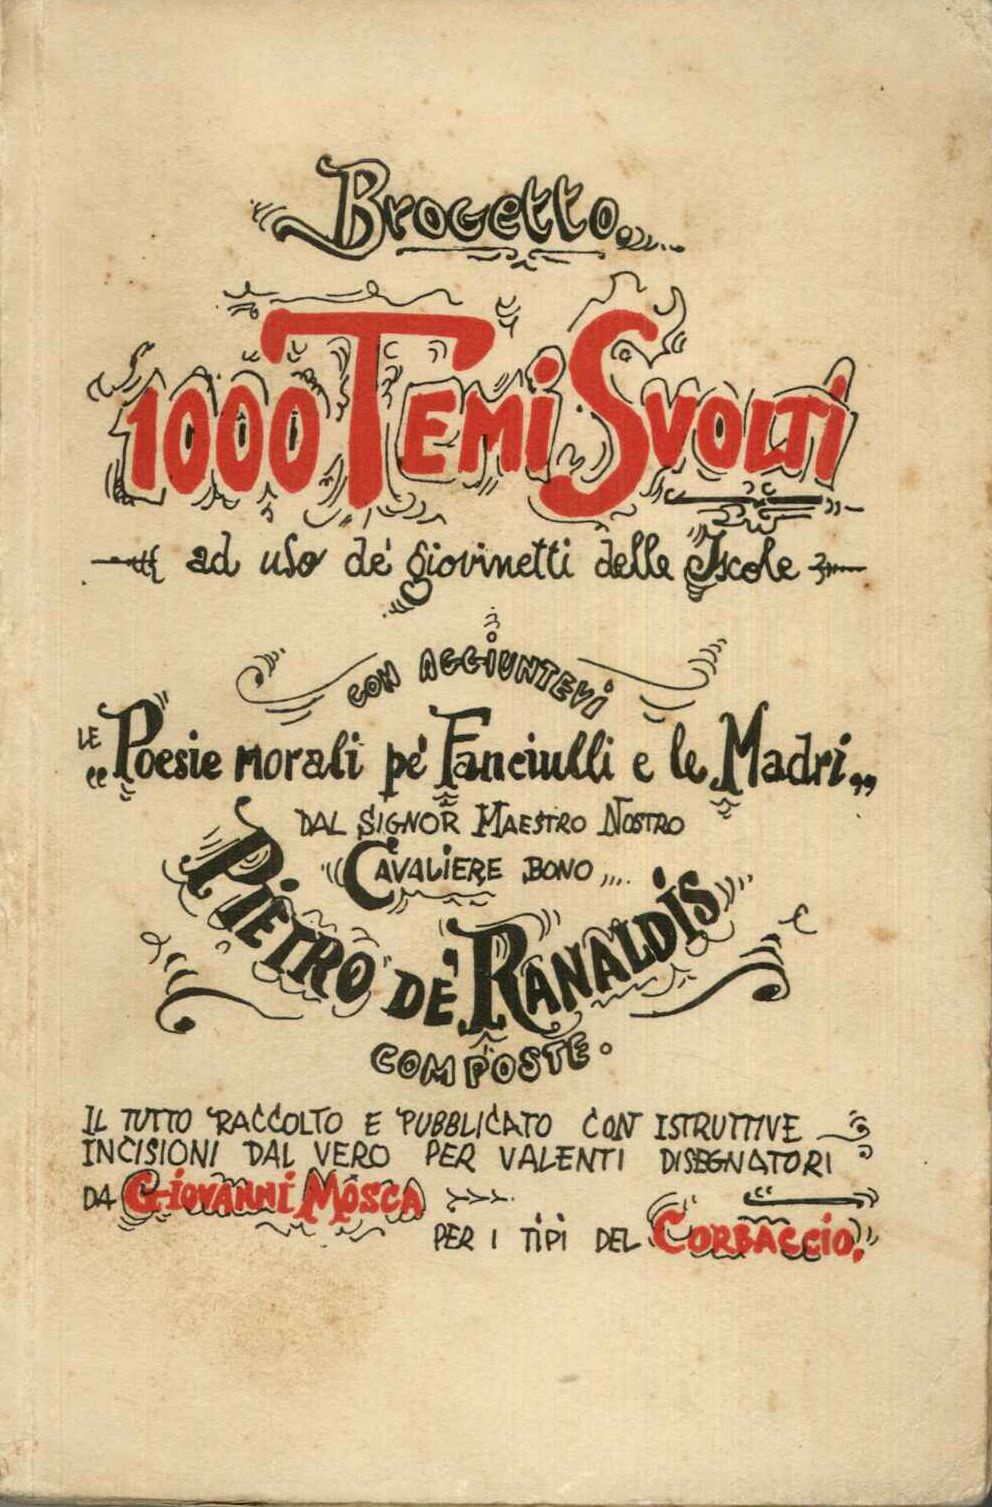 Brogetto
1000 Temi Svolti
ad uso de' giovinetti delle Iscole
CON AGGIUNTEVI
LE "Poesie morali pe' Fanciulli e le Madri"
DAL SIGNOR MAESTRO NOSTRO
CAVALIERE BONO
PIETRO DE' RANALDIS
COMPOSTE.
IL TUTTO RACCOLTO E PUBBLICATO CON ISTRUTTIVE
INCISIONI DAL VERO PER VALENTI DISEGNATORI
DA GIOVANNI MOSCA
PER I TIPI DEL CORBACCIO.